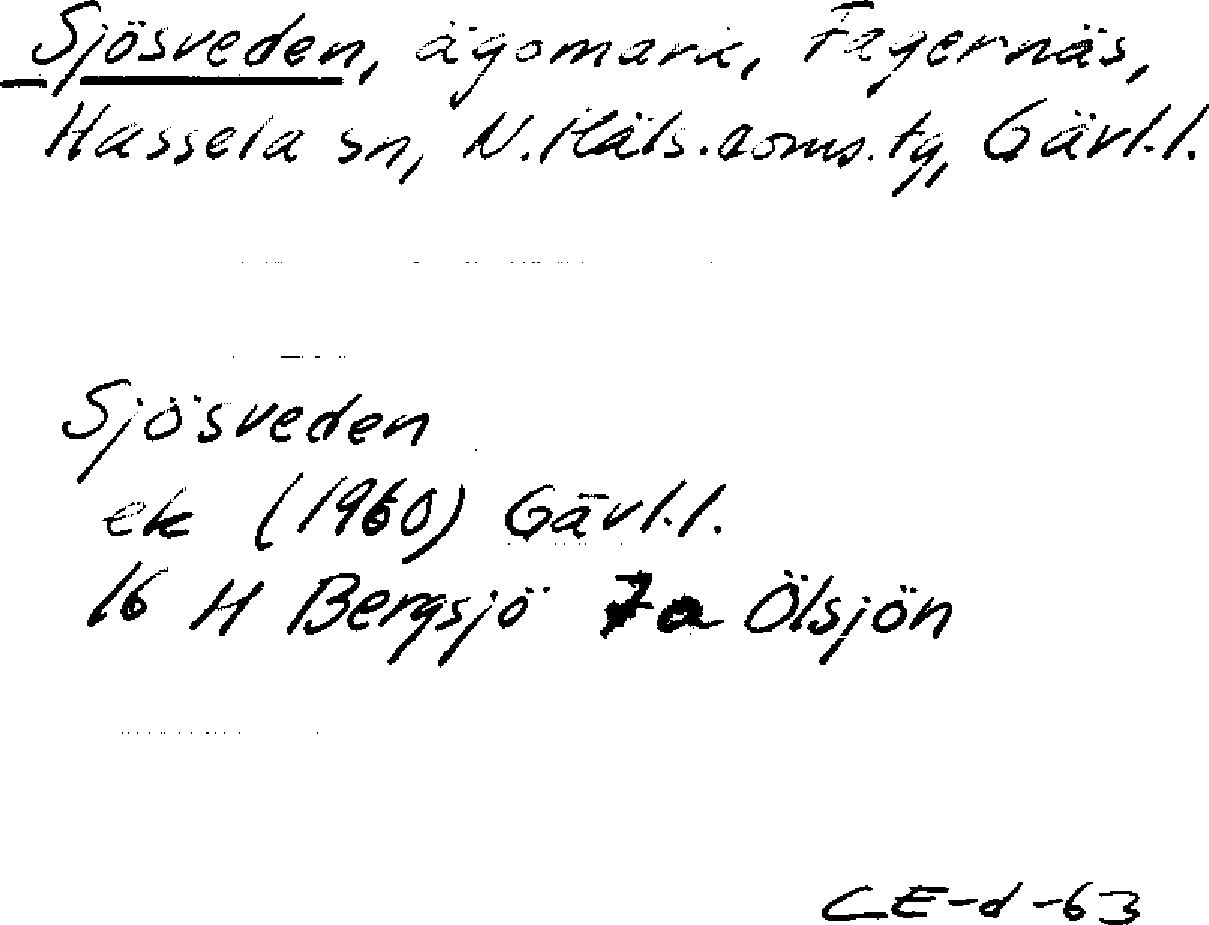 Sjösveden, ägomark, Fagernäs,
Hassela sn, N. Häls. doms. tg, Gävl.l.
Sjösveden
ek (1960) Gävl.l.
16 H Bergsjö 7a Ölsjön
CE-d-63